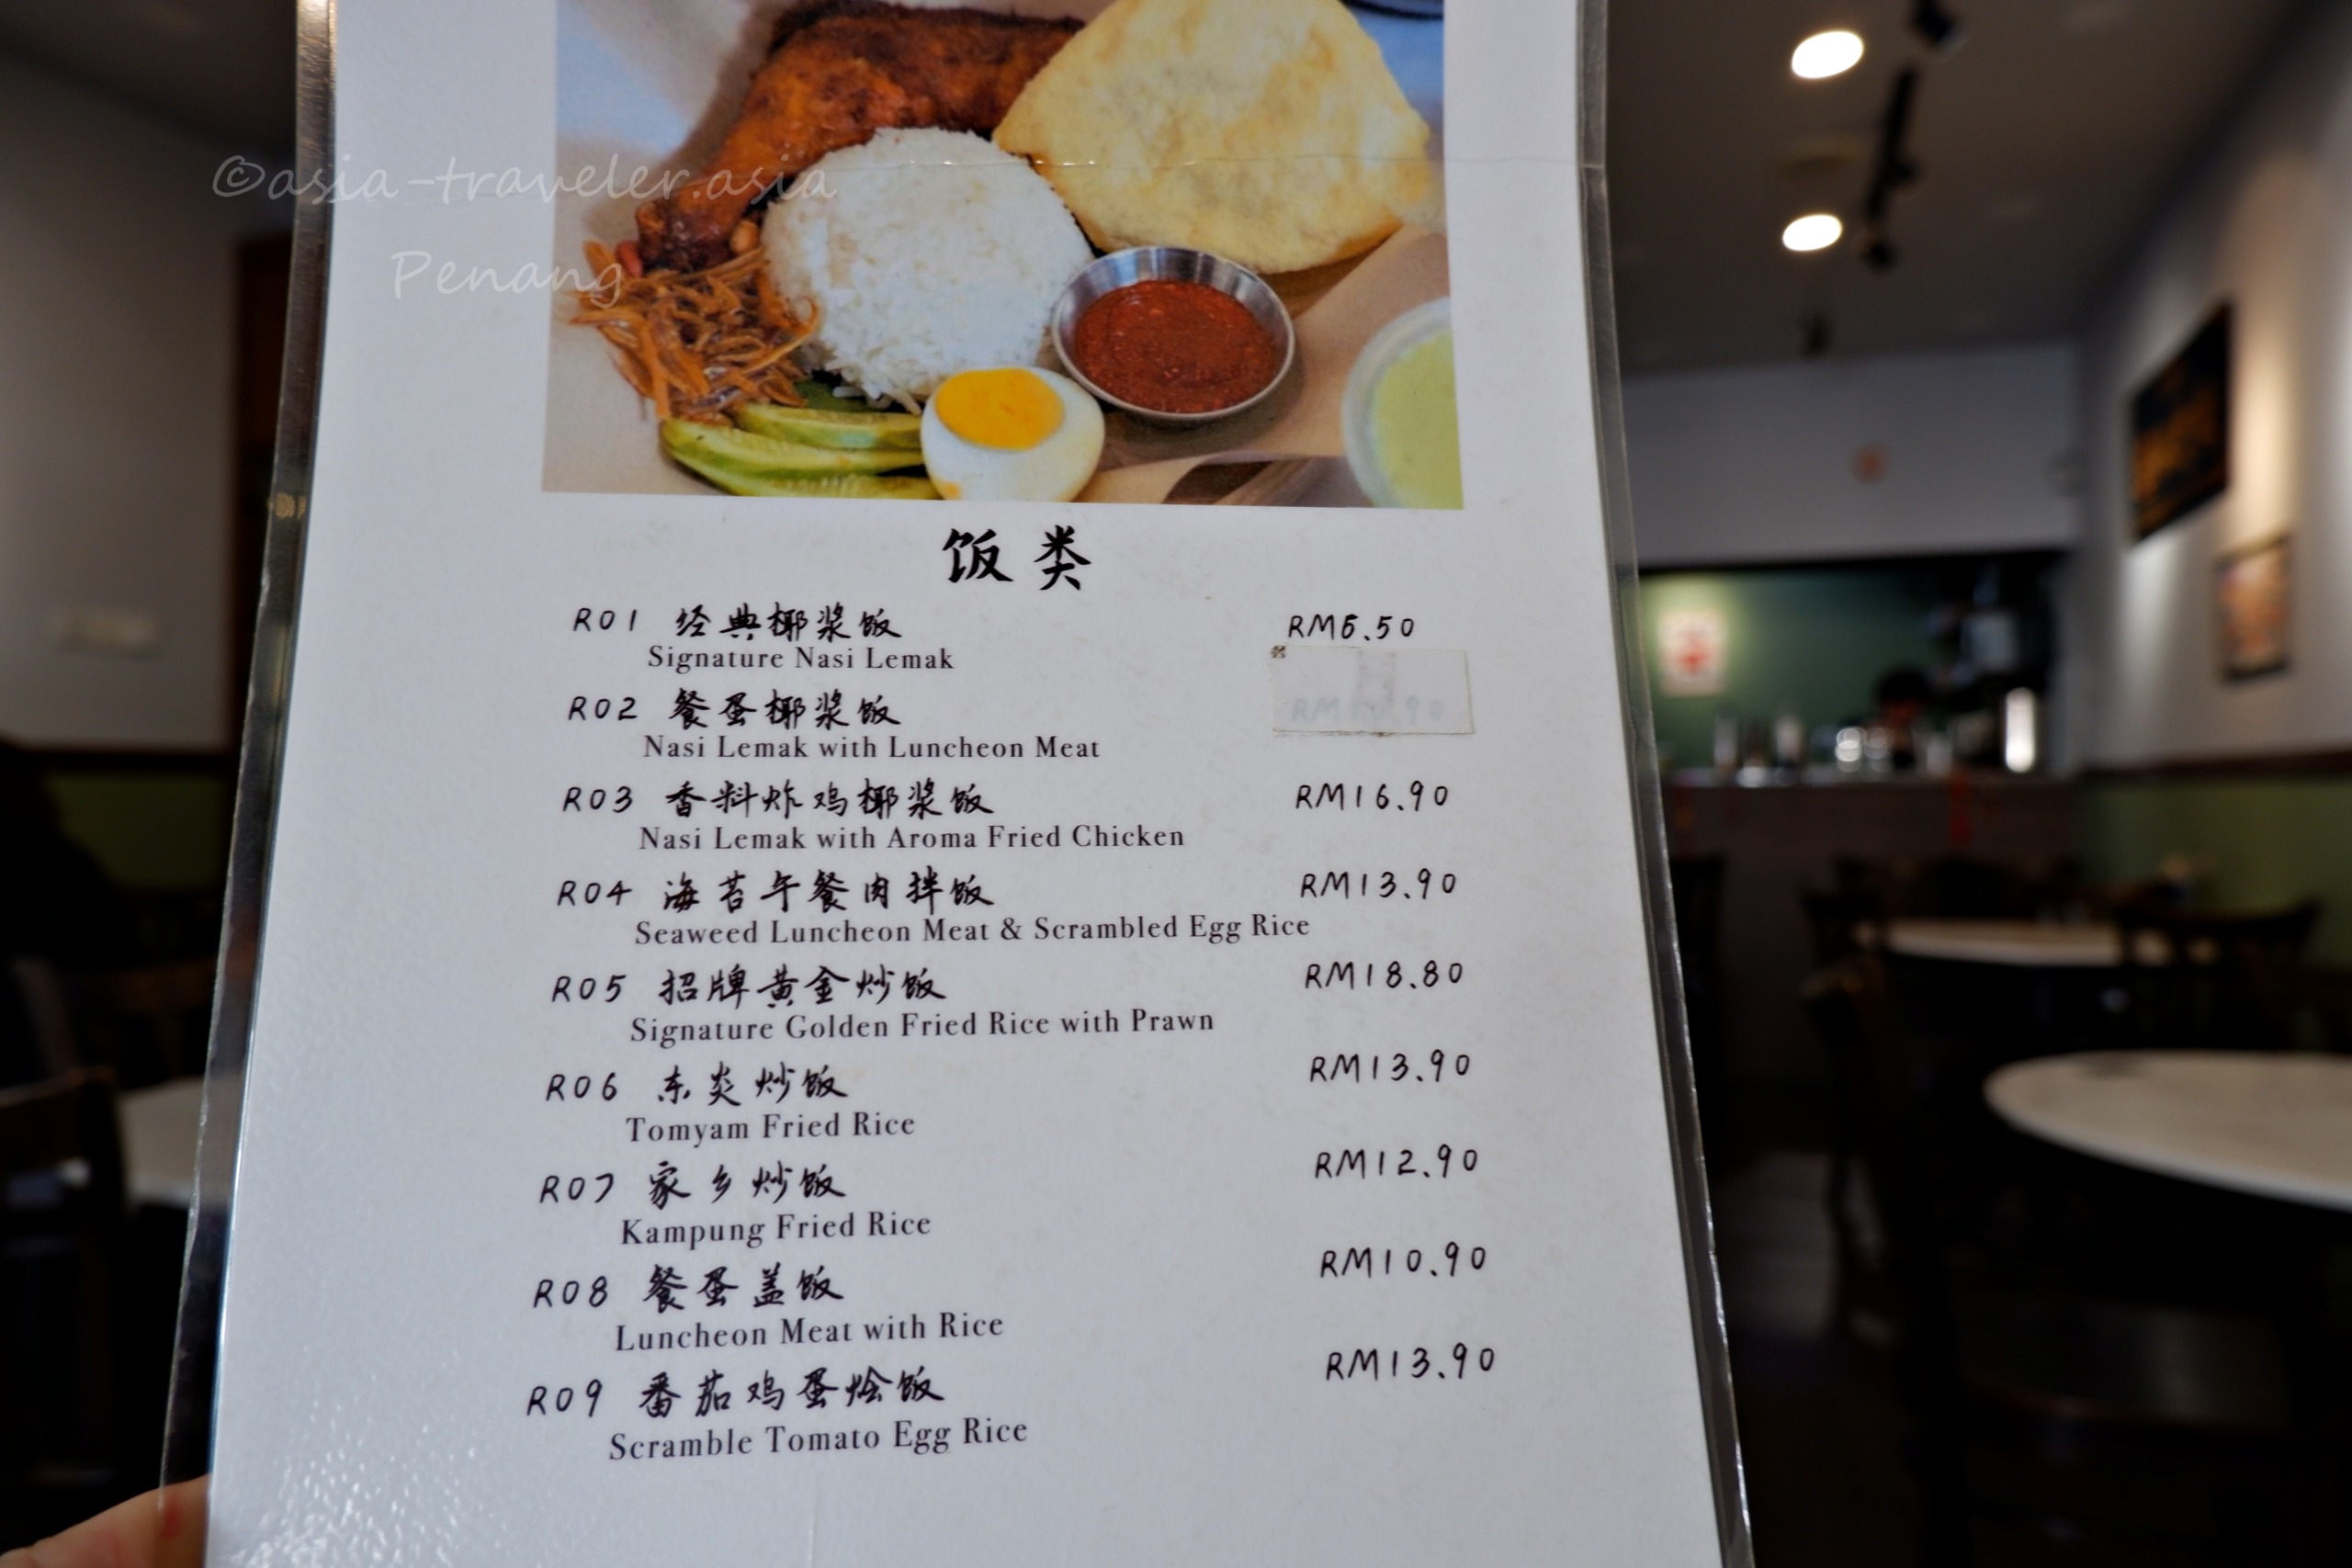 ©asia-traveler.asia
Penang
饭类
R01 经典椰浆饭 RM6.50
Signature Nasi Lemak
R02 餐蛋椰浆饭
Nasi Lemak with Luncheon Meat
R03 香料炸鸡椰浆饭 RM16.90
Nasi Lemak with Aroma Fried Chicken
R04 海苔午餐肉拌饭 RM13.90
Seaweed Luncheon Meat & Scrambled Egg Rice
R05 招牌黄金炒饭 RM18.80
Signature Golden Fried Rice with Prawn
R06 东炎炒饭 RM13.90
Tomyam Fried Rice
R07 家乡炒饭 RM12.90
Kampung Fried Rice
R08 餐蛋盖饭 RM10.90
Luncheon Meat with Rice
R09 番茄鸡蛋烩饭 RM13.90
Scramble Tomato Egg Rice